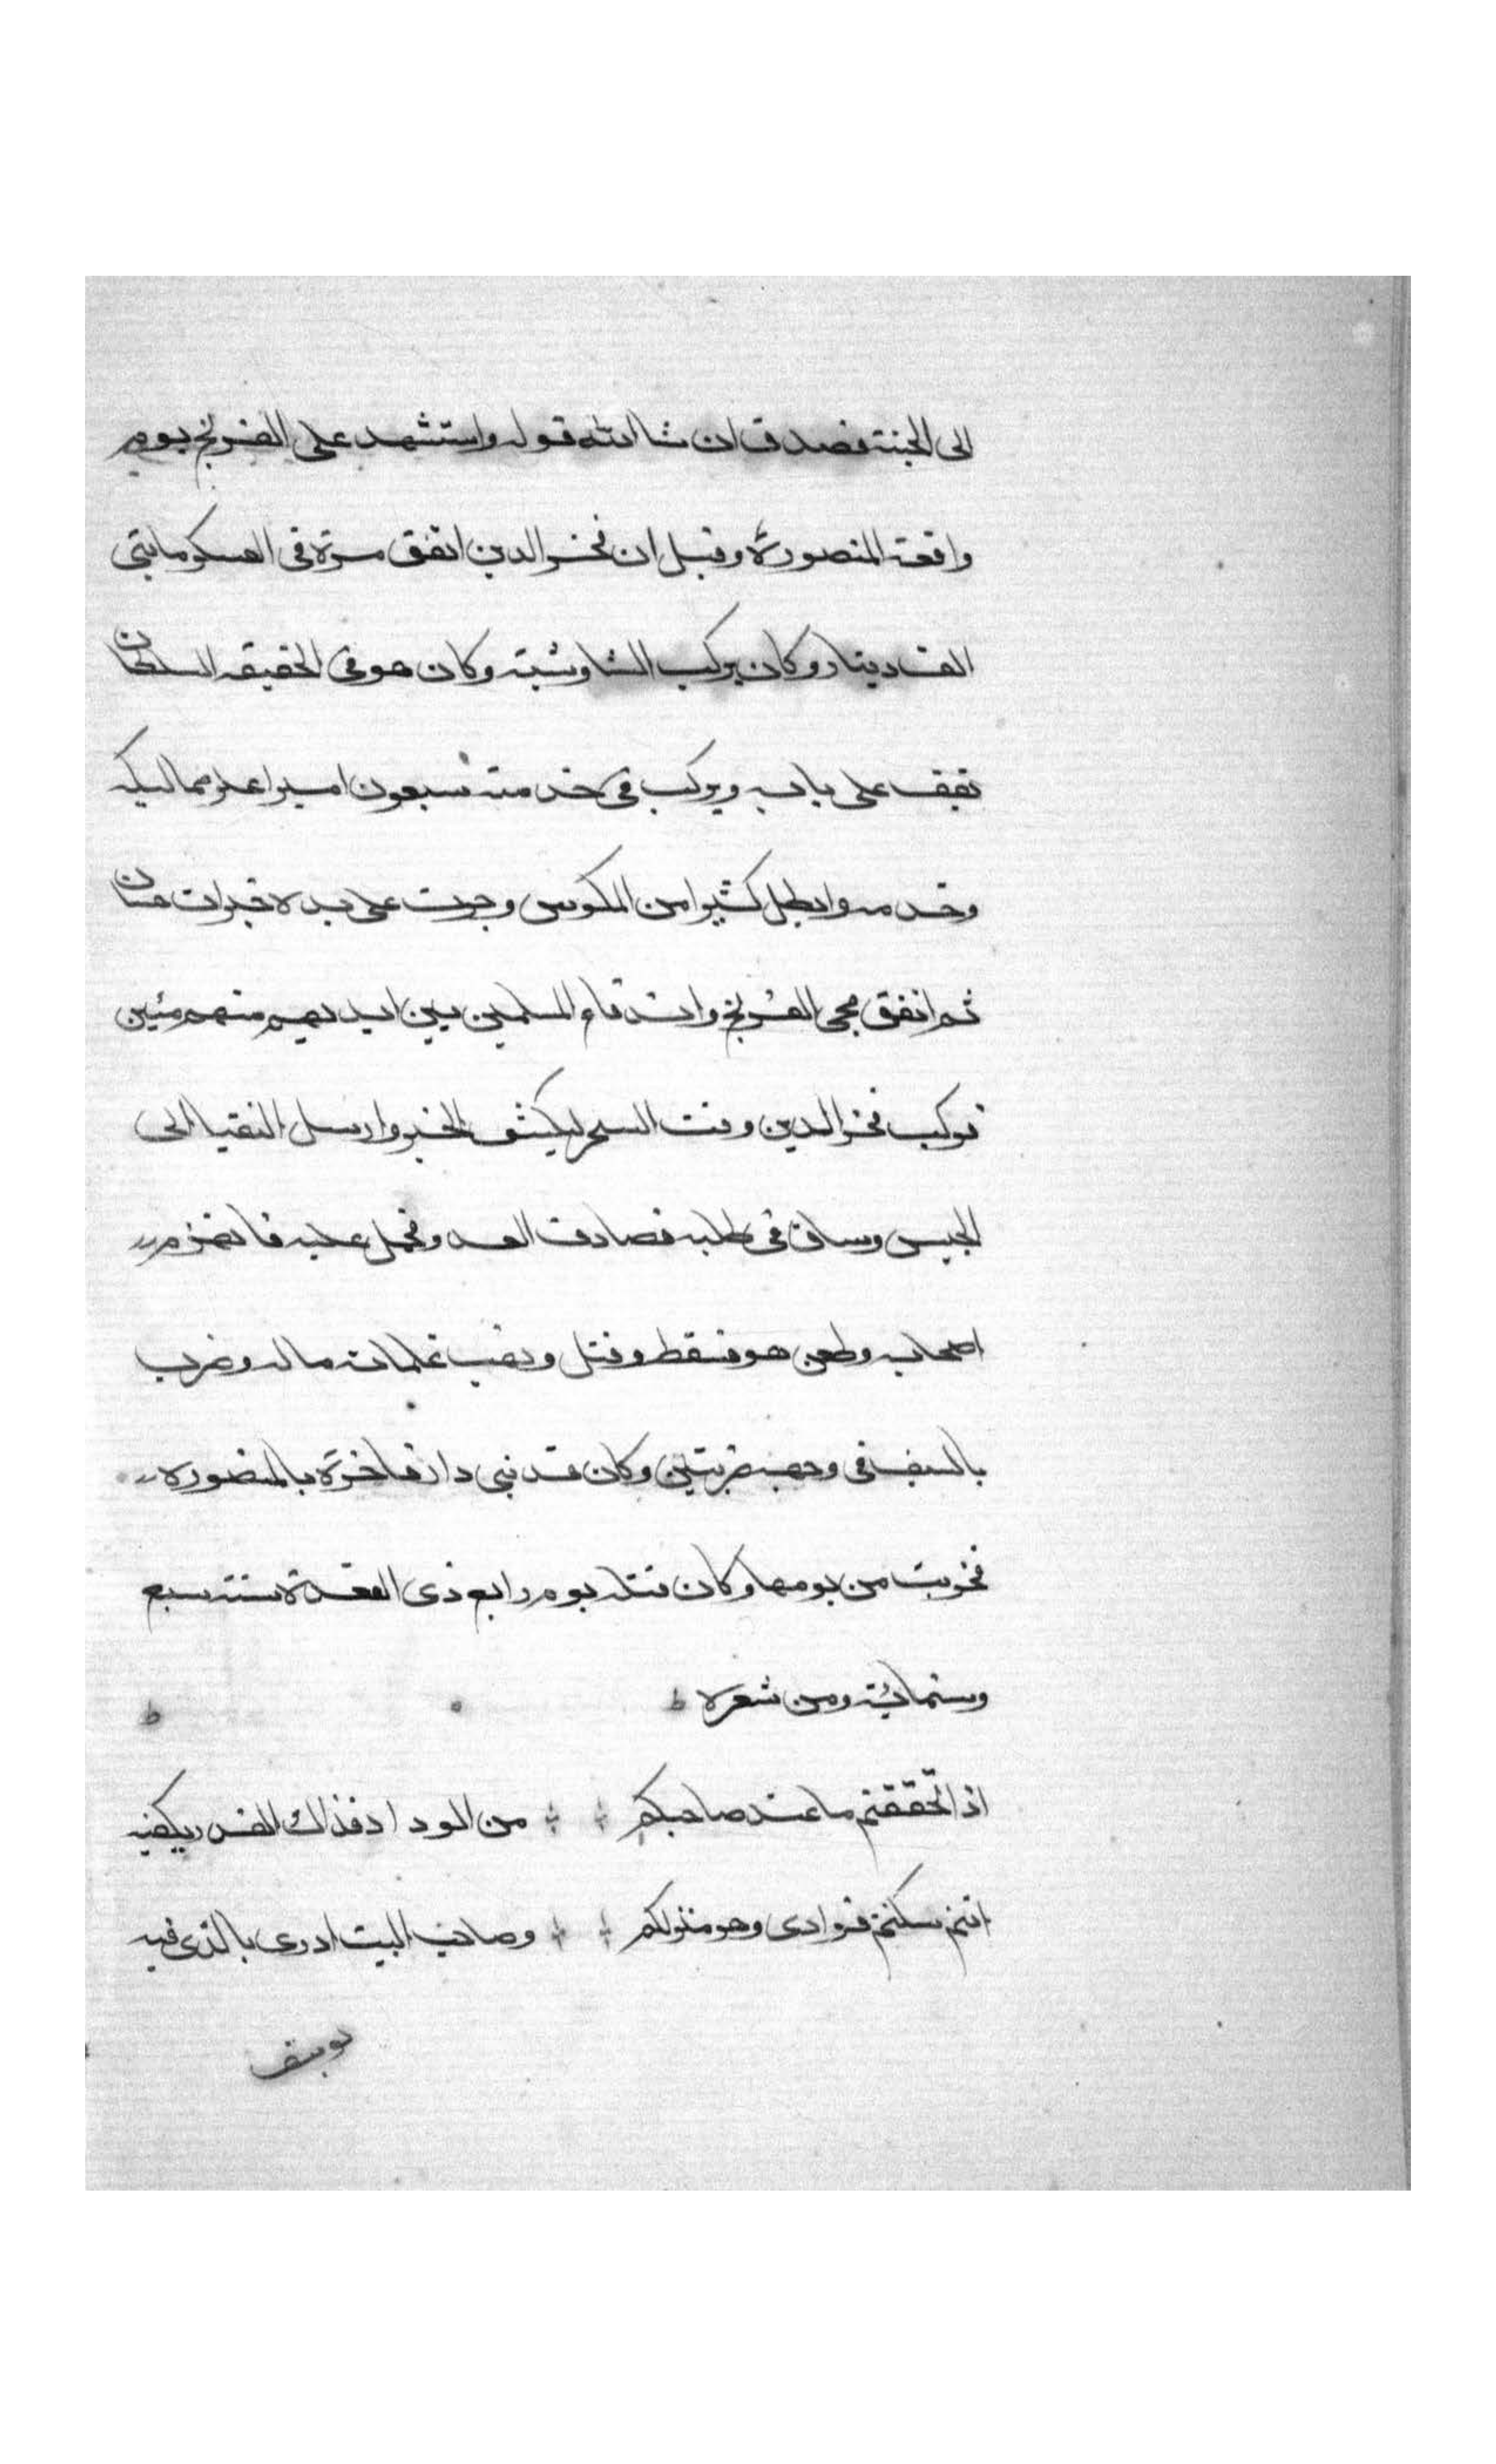 الى الجنة فصدق ان شا الله قوله واستشهد على الفرنج يوم
واقعة المنصورة وقيل ان فخر الدين اتفق مرة فى العسكر مايتى
الف دينار وكان يركب الشاوشية وكان هو فى الحقيقه السلطان
تقف على بابه ويركب فى خدمته سبعون اميرا غير مماليكه
وخدمه وابطل كثيرا من المكوس وجرت على يده خيرات حسان
ثم اتفق مجى الفرنج واندفاع المسلمين بين ايديهم منهزمين
فركب فخر الدين وقت السحر ليكشف الخبر وارسل النقبا الى
الجيش وساق فى طلبه فصادف العدو فحمل عليه فانهزم
اصحابه وطعن هو فسقط وقتل ونهب غلمانه ماله وضرب
بالسيف فى وجهه ضربتين وكان قد بنى دار فاخرة بالمنصوره
فخربت من يومها وكان قتله يوم رابع ذى القعدة سنة سبع
وستمائة ومن شعره
اذا تحققتم ما عند صاحبكم من الوداد فذاك القدر يكفيه
انتم سكنتم فوادى وهو منزلكم وصاحب البيت ادرى بالذى فيه
يوسف